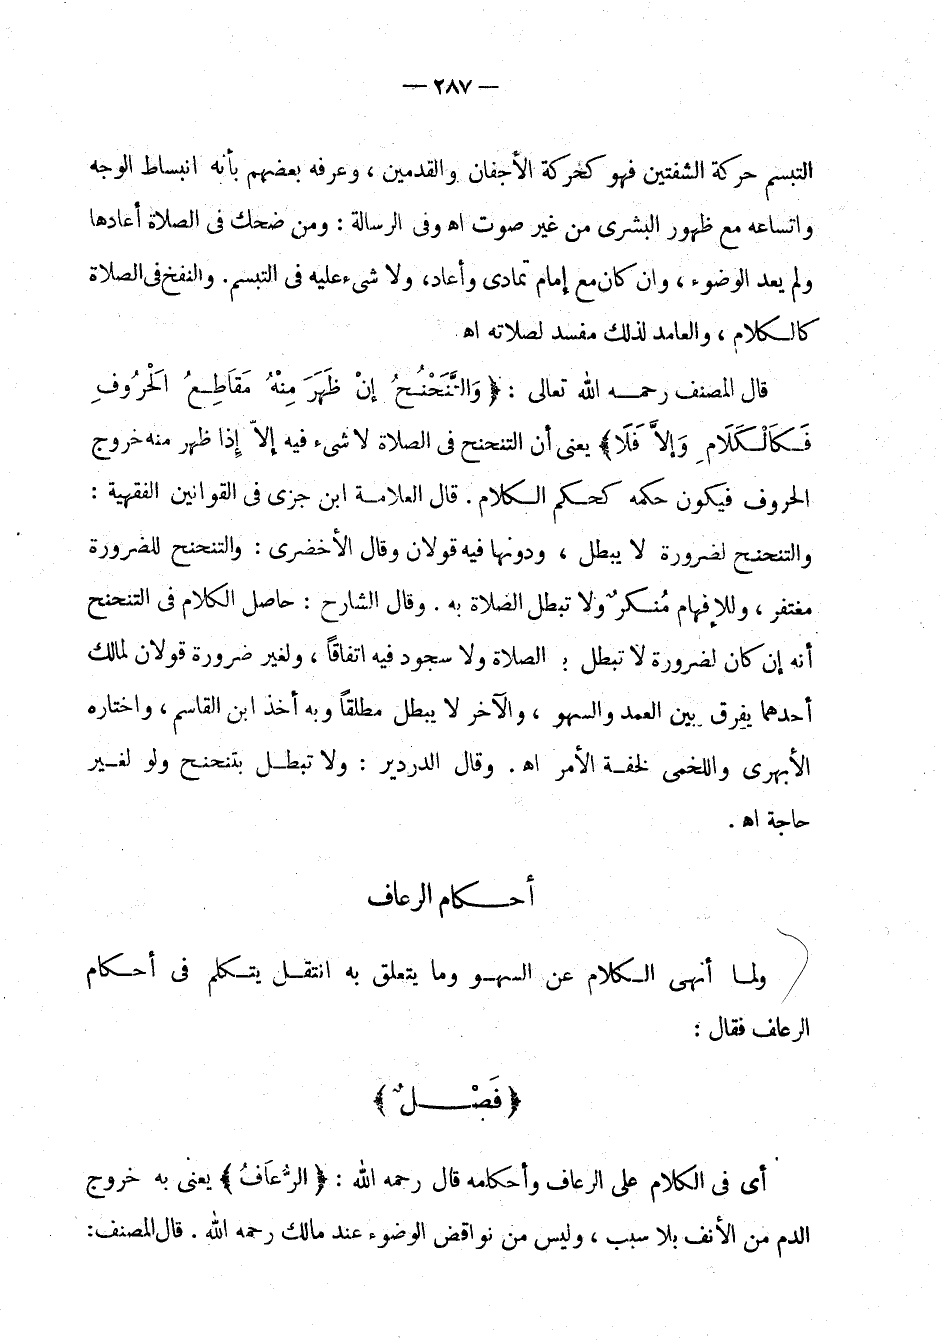 — ٢٨٧ —
التبسم حركة الشفتين فهو كحركة الأجفان والقدمين ، وعرفه بعضهم بأنه انبساط الوجه
واتساعه مع ظهور البشرى من غير صوت اه وفى الرسالة : ومن ضحك فى الصلاة أعادها
ولم يعد الوضوء ، وان كان مع إمام تمادى وأعاد، ولا شىء عليه فى التبسم. والنفخ فى الصلاة
كالكلام ، والعامد لذلك مفسد لصلاته اه
قال المصنف رحمه الله تعالى : ﴿ وَالتَّنَحْنُحُ إِنْ ظَهَرَ مِنْهُ مَقَاطِعُ الْحُرُوفِ
فَكَالْكَلَامِ وَإِلاَّ فَلَا﴾ يعنى أن التنحنح فى الصلاة لا شىء فيه إلاّ إِذا ظهر منه خروج
الحروف فيكون حكمه كحكم الكلام . قال العلامة ابن جزى فى القوانين الفقهية :
والتنحنح لضرورة لا يبطل ، ودونها فيه قولان وقال الأخضرى : والتنحنح للضرورة
مغتفر ، وللإفهام مُنكرٌ ولا تبطل الصلاة به . وقال الشارح : حاصل الكلام فى التنحنح
أنه إن كان لضرورة لا تبطل به الصلاة ولا سجود فيه اتفاقاً ، ولغير ضرورة قولان لمالك
أحدهما يفرق بين العمد والسهو ، والآخر لا يبطل مطلقاً وبه أخذ ابن القاسم ، واختاره
الأبهرى واللخمى لخفة الأمر اه . وقال الدردير : ولا تبطل بتنحنح ولو لغير
حاجة اه .
أحكام الرعاف
ولما أنهى الكلام عن السهو وما يتعلق به انتقل يتكلم فى أحكام
الرعاف فقال :
﴿ فَصْلٌ ﴾
أى فى الكلام على الرعاف وأحكامه قال رحمه الله : ﴿ الرُّعَافُ ﴾ يعنى به خروج
الدم من الأنف بلا سبب ، وليس من نواقض الوضوء عند مالك رحمه الله . قال المصنف: